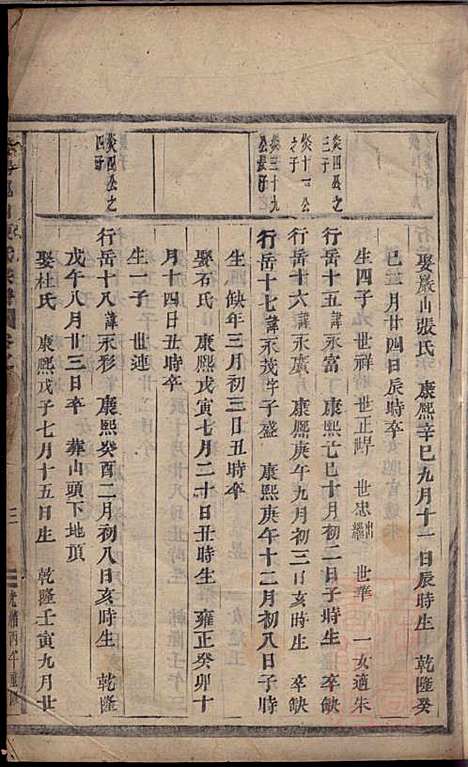 娶嚴山張氏 康熙辛巳九月十一日辰時生 乾隆癸
巳三月廿四日辰時卒
生四子 世祥 世正 世忠 世華 一女適朱
炎四公之三子
行岳十五諱永富 康熙己巳十月初二日子時生 卒缺
炎十一公之子
行岳十六諱永廣 康熙庚午九月初三日亥時生 卒缺
炎三十九公之子
行岳十七諱永茂字子盛 康熙庚午十二月初八日子時
生 缺年三月初三日丑時卒
娶石氏 康熙戊寅七月二十日丑時生 雍正癸卯十
月十四日丑時卒
生一子 世連
炎四公之四子
行岳十八諱永彩 康熙癸酉二月初八日亥時生 乾隆
戊午八月廿三日卒 葬山頭下地頂
娶杜氏 康熙戊子七月十五日生 乾隆壬寅九月廿
三